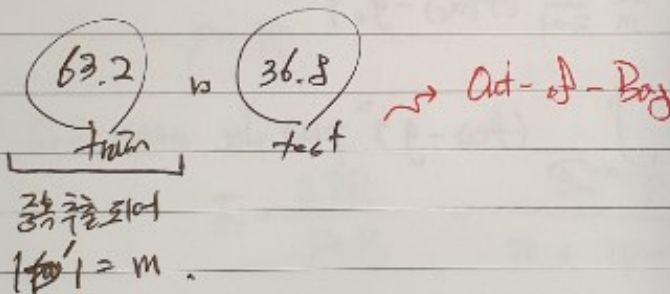 63.2 vs 36.8 → Out-of-Bag
train test
중복 추출되어
|D'| = m.